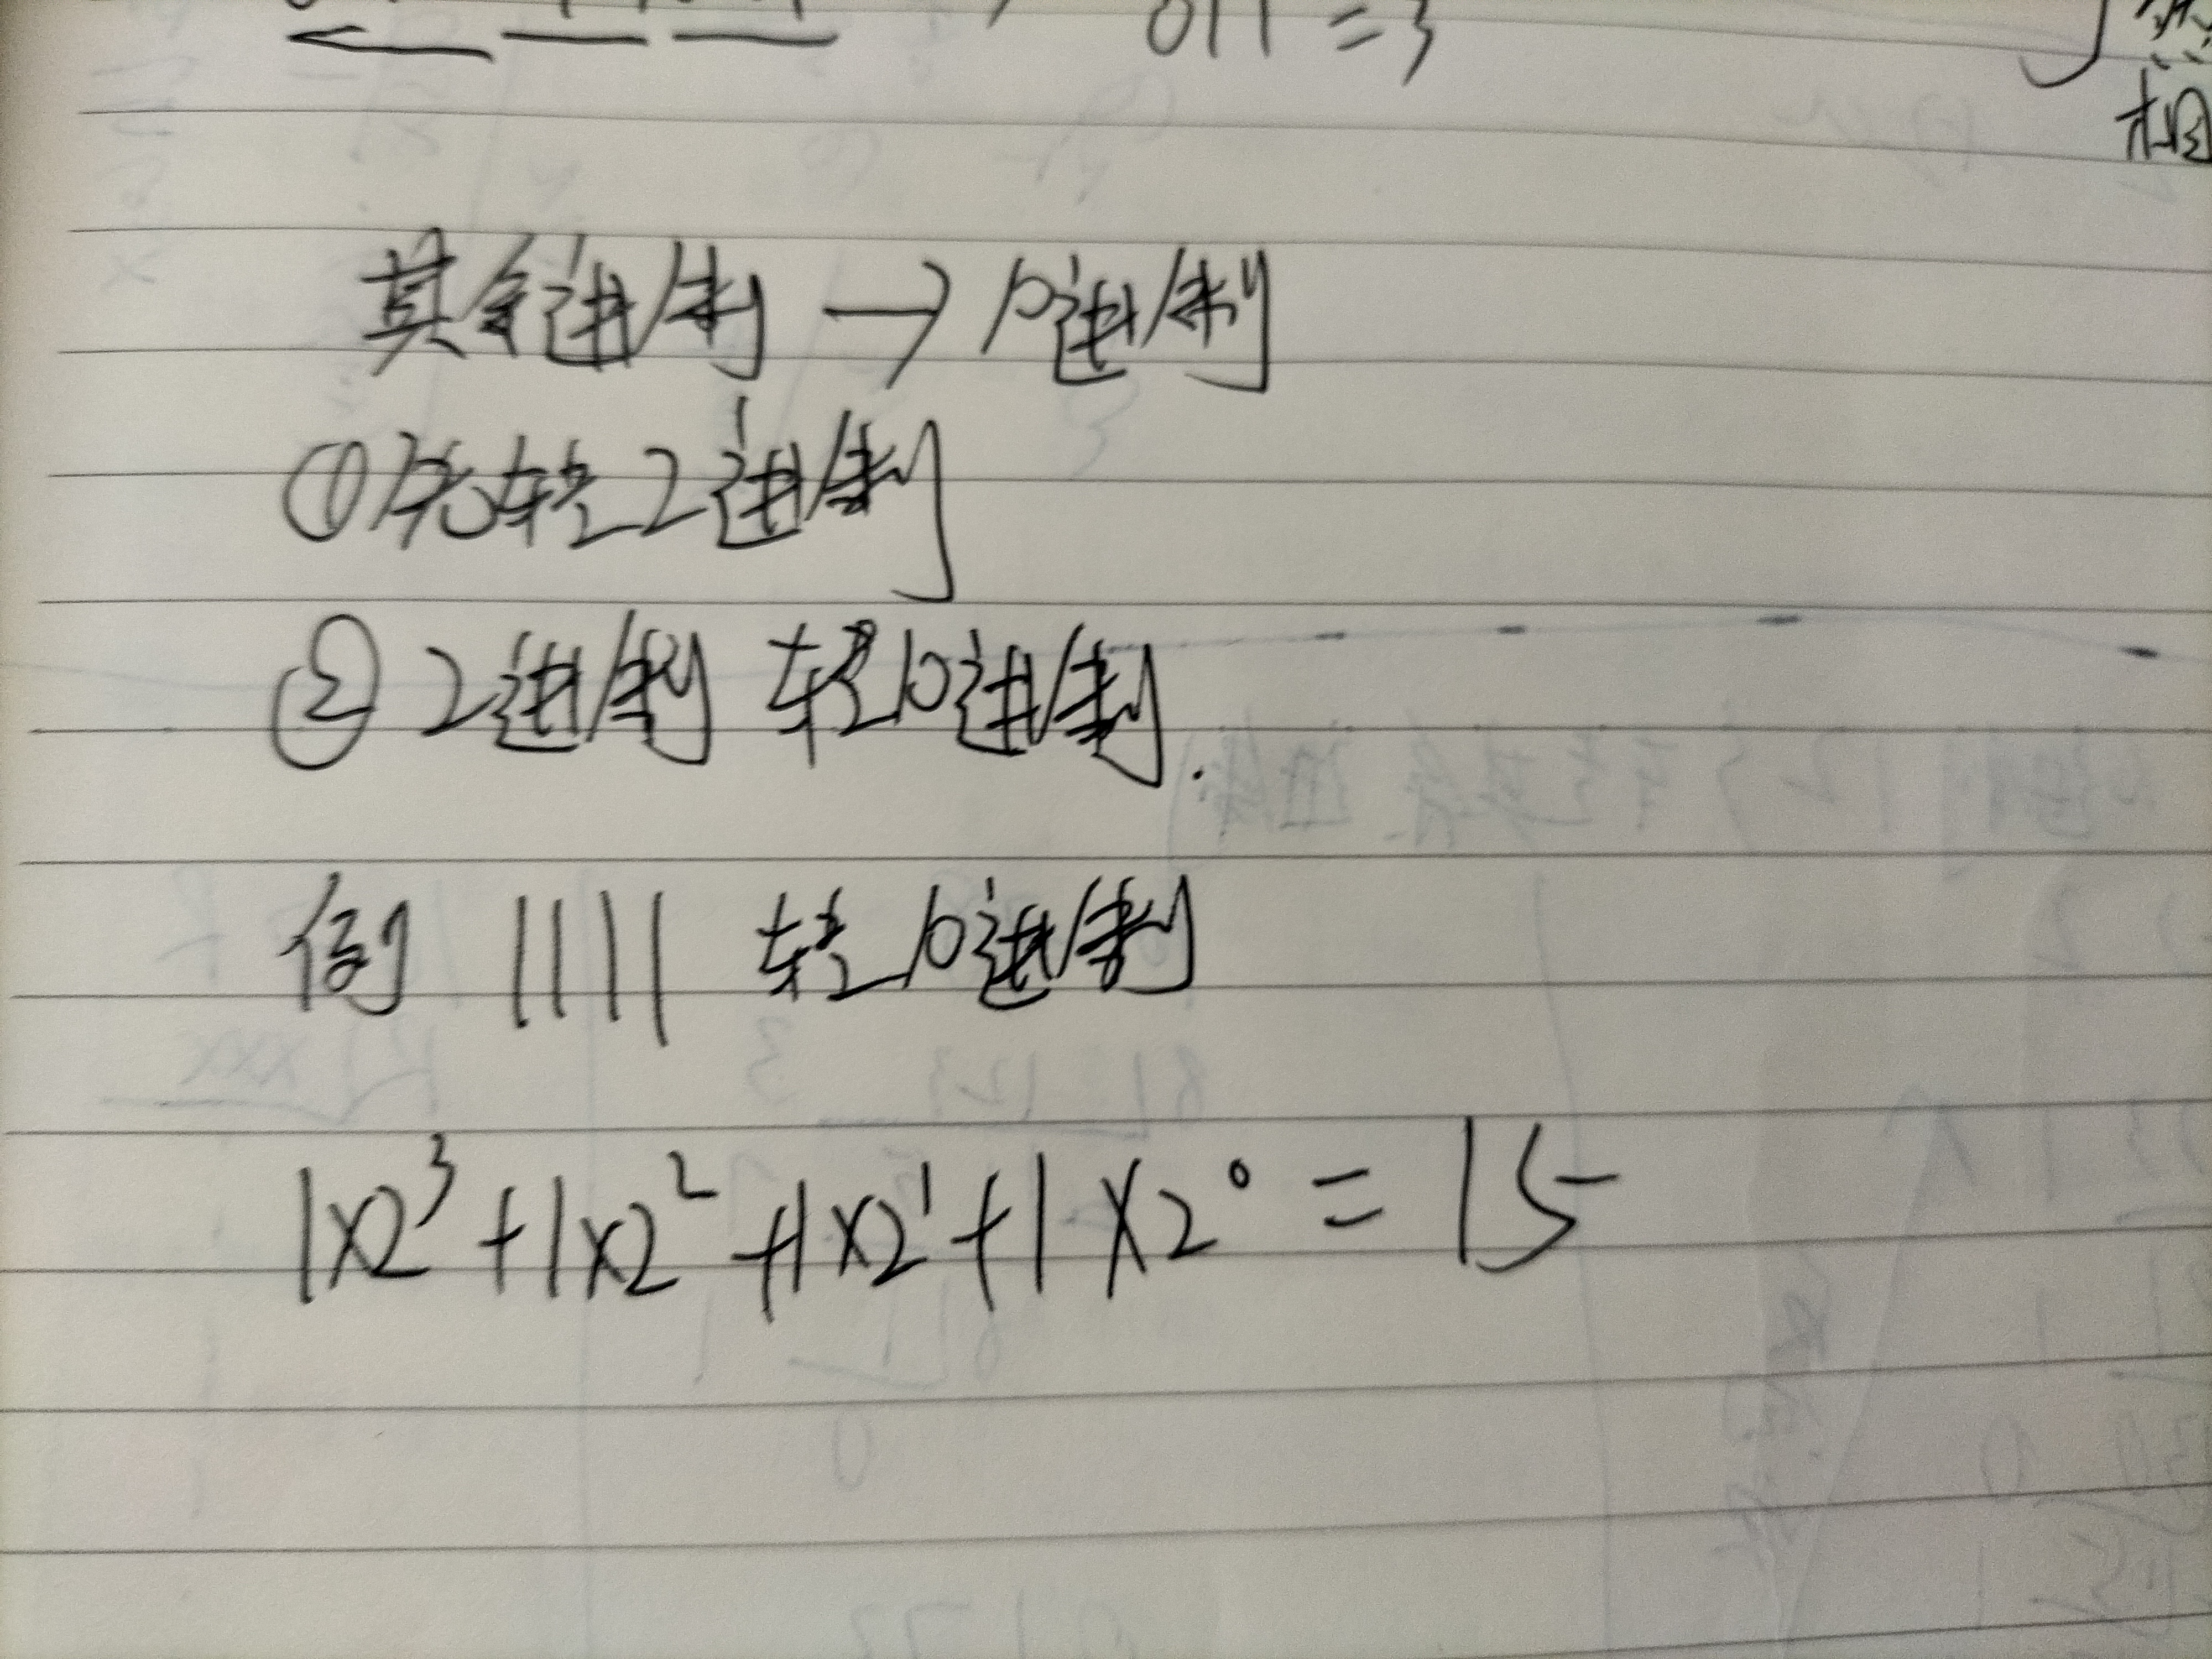 011 = 3
相
其余进制 → 10进制
①先转2进制
② 2进制 转10进制.
例 1111 转10进制
1×2³+1×2²+1×2¹+1×2⁰ = 15